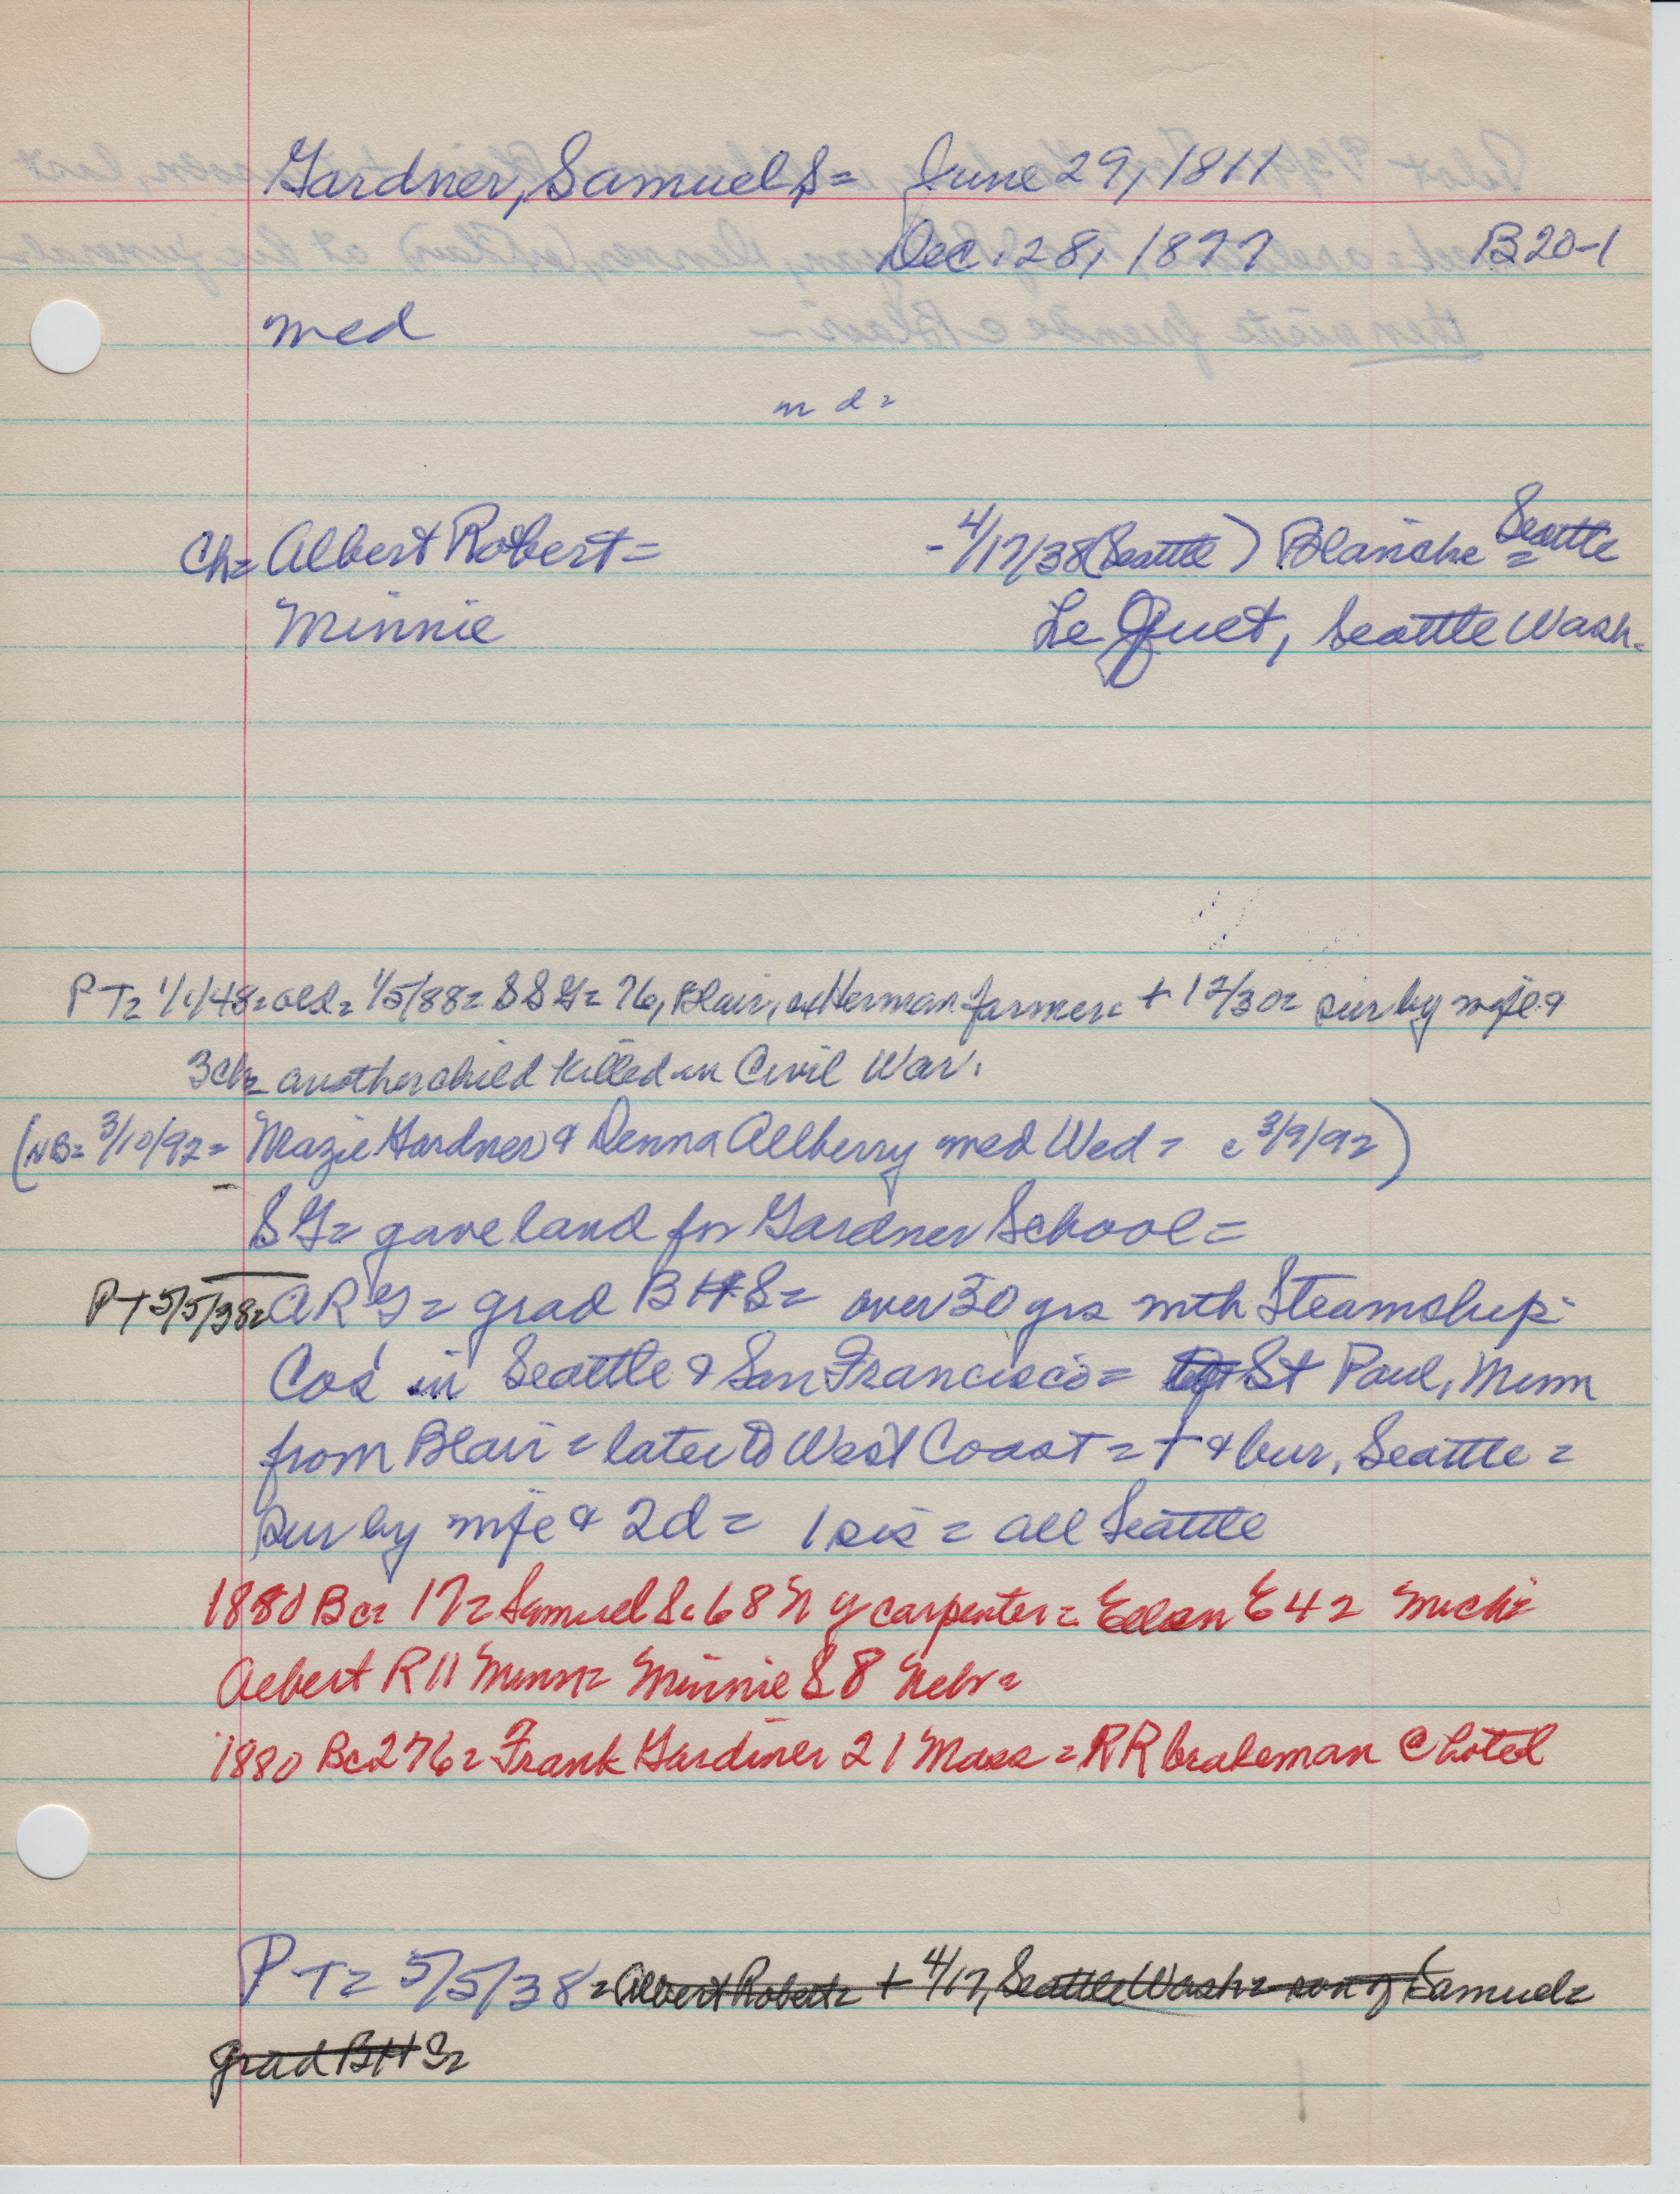 Gardner, Samuel S= June 29, 1811
Dec. 28, 1877 B20-1
med
m d=
Ch= Albert Robert= -4/17/38 (Seattle) Blanche Seattle=
Minnie Le Quet, Seattle Wash.
PT= 1/1/48= old= 1/5/88= SSG= 76, Blair, Herman farmer= + 12/30= sur by wife &
3ch= another child killed in Civil War.
(NB= 3/10/92= Mazie Gardner & Denna Allberry med Wed= c 3/9/92)
SG= gave land for Gardner School=
PT 5/5/38= ARG= grad BHS= over 30 yrs with Steamship
Cos in Seattle & San Francisco= St Paul, Minn
from Blair= later to West Coast= + & bur, Seattle=
sur by wife & 2d= 1 sis= all Seattle
1880 Bc= 17= Samuel S. 68 N Y carpenter= Ellen E 42 Mich=
Albert R 11 Minn= Minnie S 8 Nebr=
1880 Bc276= Frank Gardiner 21 Mass= RR brakeman @ hotel
PT= 5/5/38= Albert Robert= + 4/17, Seattle Wash= son of Samuel=
grad BHS=